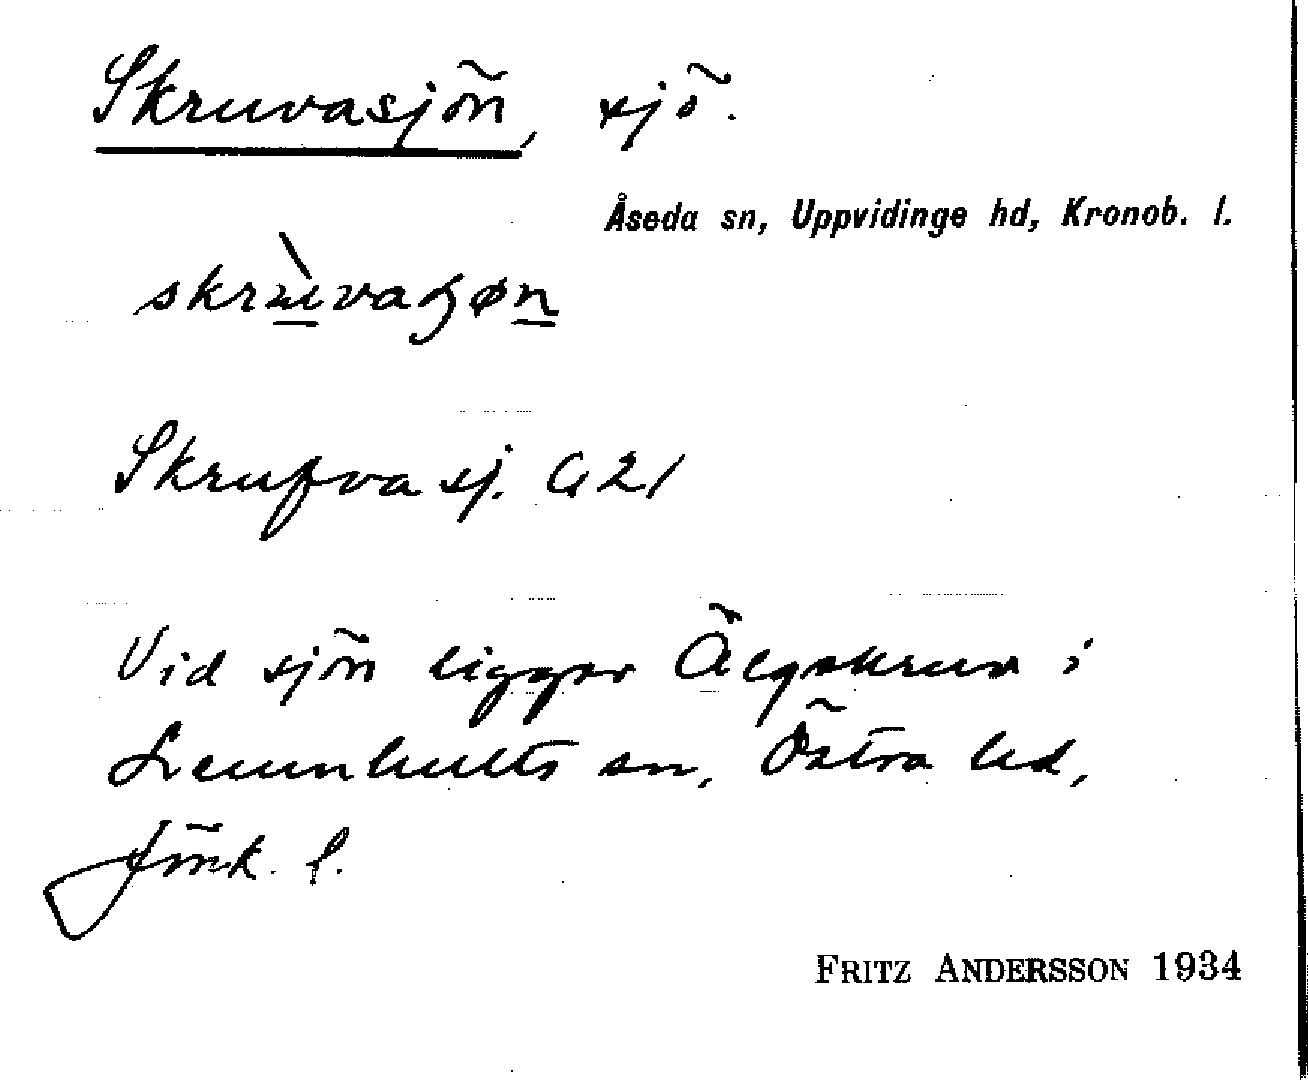 Skruvasjön, sjö.
Åseda sn, Uppvidinge hd, Kronob. l.
Skrufva sj. G 21
Vid sjön ligger Älgskruv i
Lemnhults sn, Östra hd,
Jönk. l.
FRITZ ANDERSSON 1934